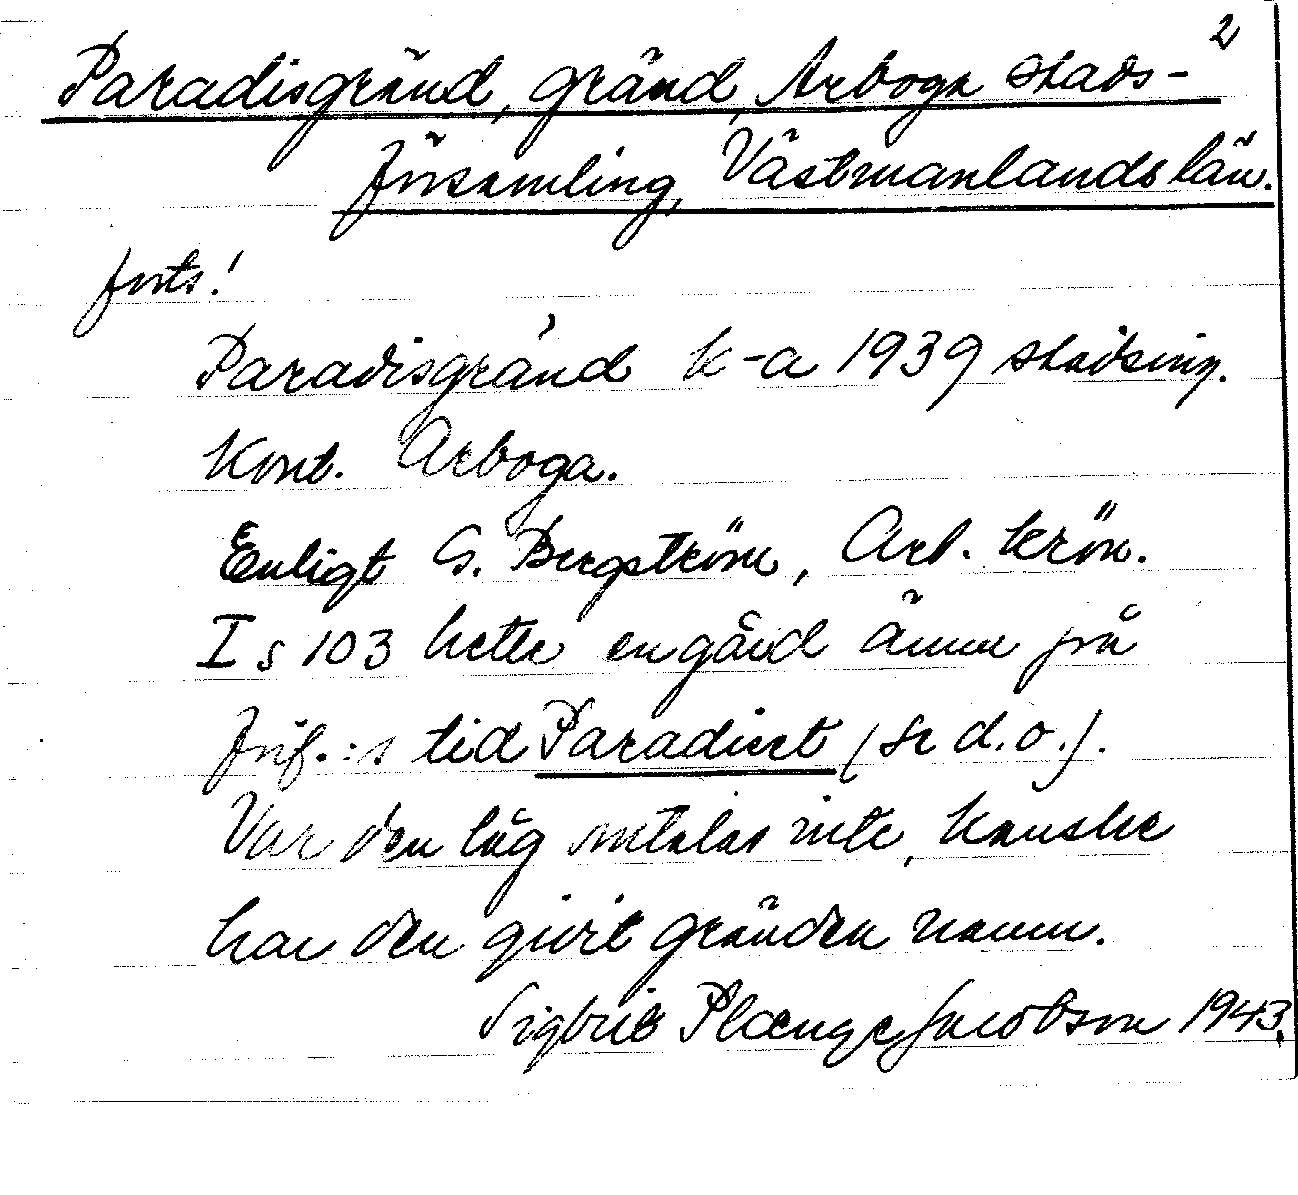 2
Paradisgränd, gränd, Arboga stads-
församling, Västmanlands län.
forts!
Paradisgränd k-a 1939 stadsing.
Kont. Arboga.
Enligt G. Bergström, Arb. krön.
I s 103 hette en gård ännu på
förf.:s tid Paradiset (se d.o.).
Var den låg omtalas inte, kanske
har den givit gränden namn.
Sigbrit Plænge Jacobson 1943.